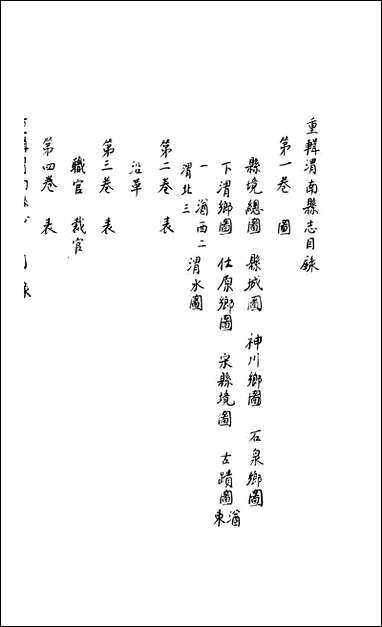 重輯渭南縣志目錄
第一卷 圖
縣境總圖 縣城圖 神川鄉圖 石泉鄉圖
下渭鄉圖 仕原鄉圖 宋縣境圖 古蹟圖 湭東
一 湭西二 渭水圖
渭北三
第二卷 表
沿革
第三卷 表
職官 裁官
第四卷 表